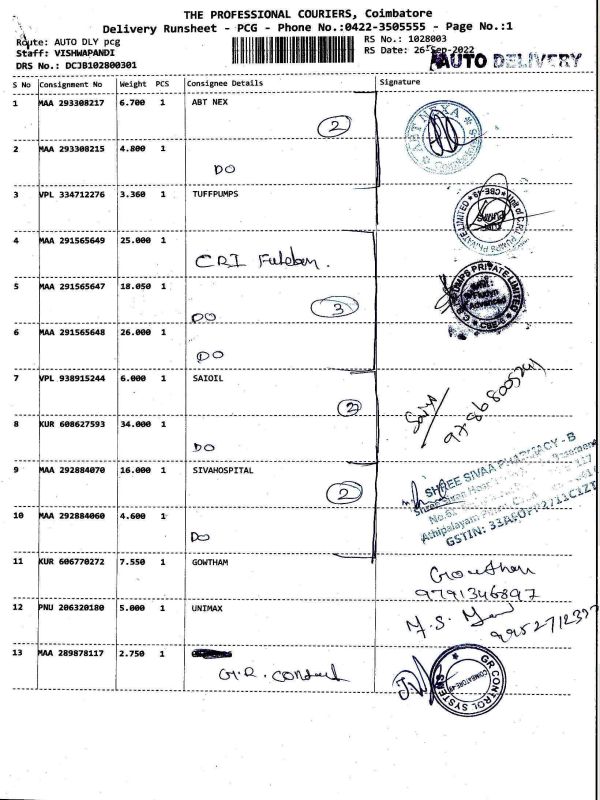 THE PROFESSIONAL COURIERS, Coimbatore
Delivery Runsheet - PCG - Phone No.:0422-3505555 - Page No.:1
Route: AUTO DLY pcg
Staff: VISHWAPANDI
DRS No.: DCJB102800301
RS No.: 1028003
RS Date: 26-Sep-2022
AUTO DELIVERY
S No Consignment No Weight PCS Consignee Details Signature
1 MAA 293308217 6.700 1 ABT NEX
2
ABT NEXA
Coimbatore
2 MAA 293308215 4.800 1
DO
3 VPL 334712276 3.360 1 TUFFPUMPS
4 MAA 291565649 25.000 1
CRI
5 MAA 291565647 18.050 1
DO
3
PUMPS PRIVATE LIMITED
Fludyn
Advanced
6 MAA 291565648 26.000 1
DO
7 VPL 938915244 6.000 1 SAIOIL
2
8 KUR 608627593 34.000 1
DO
9 MAA 292884070 16.000 1 SIVAHOSPITAL
2
SHREE SIVAA PHARMACY - B
10 MAA 292884060 4.600 1
DO
11 KUR 606770272 7.550 1 GOWTHAM
Gowtham
9791346897
12 PNU 206320180 5.000 1 UNIMAX
13 MAA 289878117 2.750 1
G.R.
GR CONTROL SYSTEMS
COIMBATORE